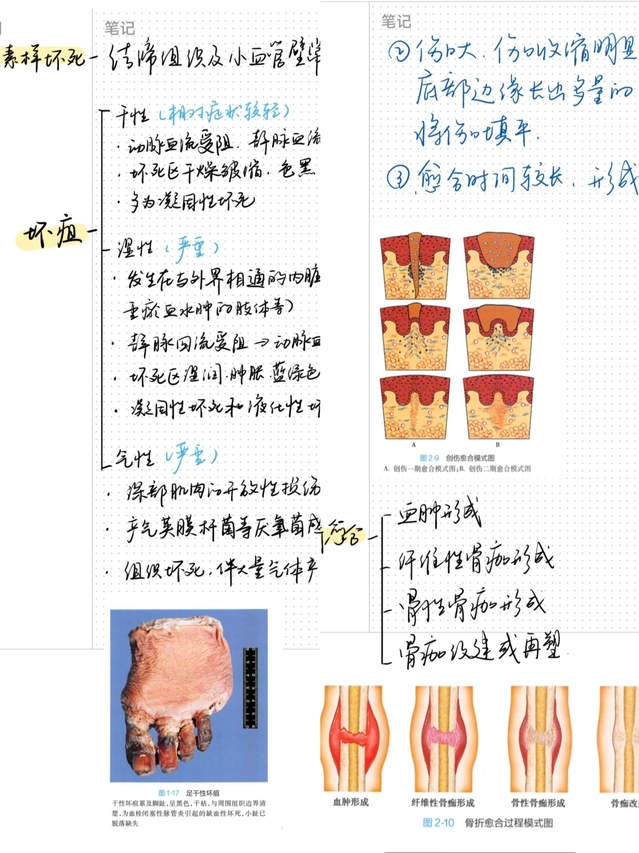 笔记
素样坏死 - 结缔组织及小血管壁
坏疽
干性 (相对症状较轻)
· 动脉血流受阻. 静脉血流
· 坏死区干燥皱缩. 色黑
· 多为凝固性坏死
湿性 (严重)
· 发生在与外界相通的内脏
重瘀血水肿的肢体等)
· 静脉回流受阻 → 动脉血
· 坏死区湿润.肿胀.蓝绿色
· 凝固性坏死和液化性坏
气性 (严重)
· 深部肌肉的开放性损伤
· 产气荚膜杆菌等厌氧菌感
· 组织坏死. 伴大量气体产
图 1-17 足干性坏疽
干性坏疽累及脚趾,呈黑色,干枯,与周围组织边界清
楚,为血栓闭塞性脉管炎引起的缺血性坏死,小趾已
脱落缺失
笔记
② 伤口大. 伤口收缩明显
底部边缘长出多量的
将伤口填平.
③ 愈合时间较长. 形成
A B
图 2-9 创伤愈合模式图
A. 创伤一期愈合模式图;B. 创伤二期愈合模式图
愈合
血肿形成
纤维性骨痂形成
骨性骨痂形成
骨痂改建或再塑
血肿形成 纤维性骨痂形成 骨性骨痂形成 骨痂改
图 2-10 骨折愈合过程模式图